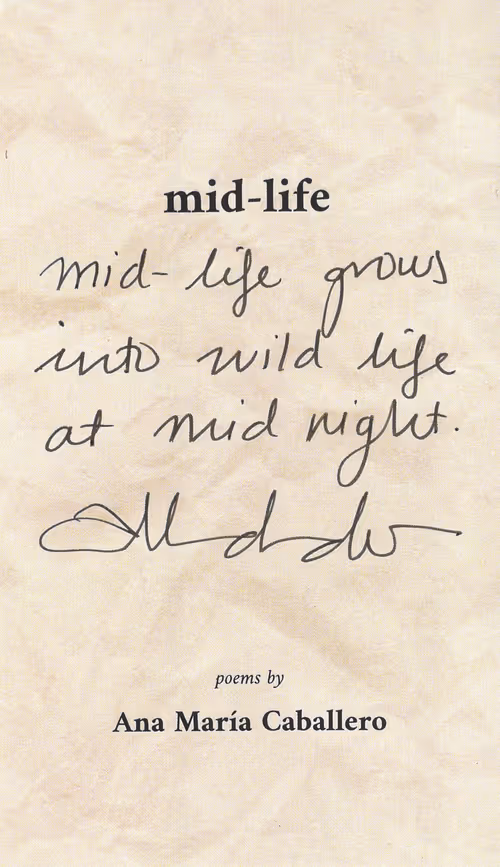 mid-life
mid-life grows
into wild life
at mid night.
poems by
Ana María Caballero